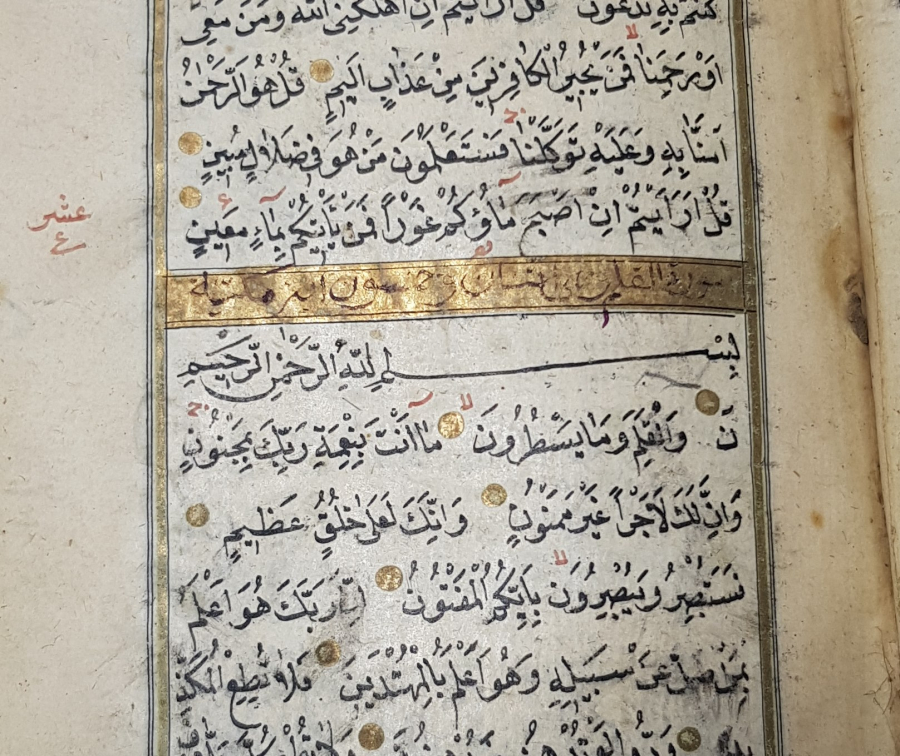 كنتم به تدعون قل ارايتم ان اهلكنى الله ومن معى
اَوْرَحِمَنَا فَمَنْ يُجِيرُ الْكَافِرِينَ مِنْ عَذَابٍ اَلِيمٍ قُلْ هُوَ الرَّحْمٰنُ
اٰمَنَّا بِهِ وَعَلَيْهِ تَوَكَّلْنَا فَسَتَعْلَمُونَ مَنْ هُوَ فِى ضَلَالٍ مُبِينٍ
قُلْ اَرَاَيْتُمْ اِنْ اَصْبَحَ مَاؤُكُمْ غَوْرًا فَمَنْ يَأْتِيكُمْ بِمَاءٍ مَعِينٍ
عشر
ع
سورة القلم وخمسون اية مكية
بِسْمِ اللّٰهِ الرَّحْمٰنِ الرَّحِيمِ
نَ وَالْقَلَمِ وَمَا يَسْطُرُونَ مَا اَنْتَ بِنِعْمَةِ رَبِّكَ بِمَجْنُونٍ
وَاِنَّ لَكَ لَاَجْرًا غَيْرَ مَمْنُونٍ وَاِنَّكَ لَعَلٰى خُلُقٍ عَظِيمٍ
فَسَتُبْصِرُ وَيُبْصِرُونَ بِاَيِّكُمُ الْمَفْتُونُ اِنَّ رَبَّكَ هُوَ اَعْلَمُ
بِمَنْ ضَلَّ عَنْ سَبِيلِهِ وَهُوَ اَعْلَمُ بِالْمُهْتَدِينَ فَلَا تُطِعِ الْمُكَذِّ